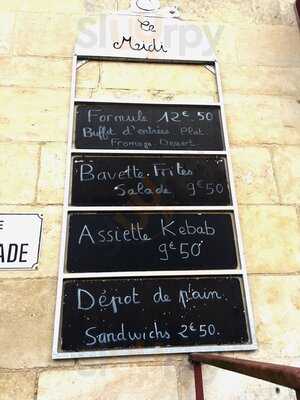 Le
Midi
Formule 12€50
Buffet d'entrées Plat
Fromage Dessert
Bavette Frites
Salade 9€50
Assiette Kebab
9€50
Dépot de pain
Sandwichs 2€50.
ADE